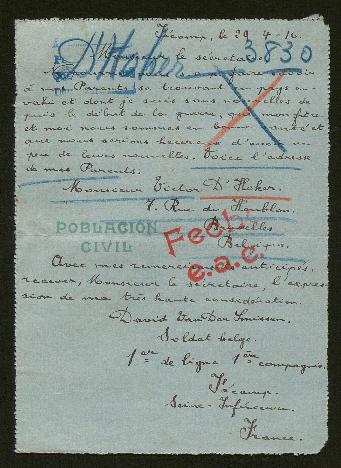 Fécamp, le 29-4-16.
D'Hoker 3830
Monsieur le secrétaire
faire savoir
à mes Parents, se trouvant en pays en-
vahi et dont je suis sans nouvelles de-
puis le début de la guerre, que mon frère
et moi nous sommes en bonne santé et
que nous serions heureux d'avoir un
peu de leurs nouvelles. Voici l'adresse
de mes Parents.
Monsieur Victor D'Hoker.
7. Rue du Houblon.
Bruxelles
Belgique.
POBLACIÓN
CIVIL
Fecha
e.a.c.
Avec mes remerciements anticipés,
recevez, Monsieur le secrétaire, l'expres-
sion de ma très haute considération.
David Van Der Smissen.
Soldat belge.
1er de ligne 1ère compagnie.
Fécamp.
Seine-Inférieure.
France.